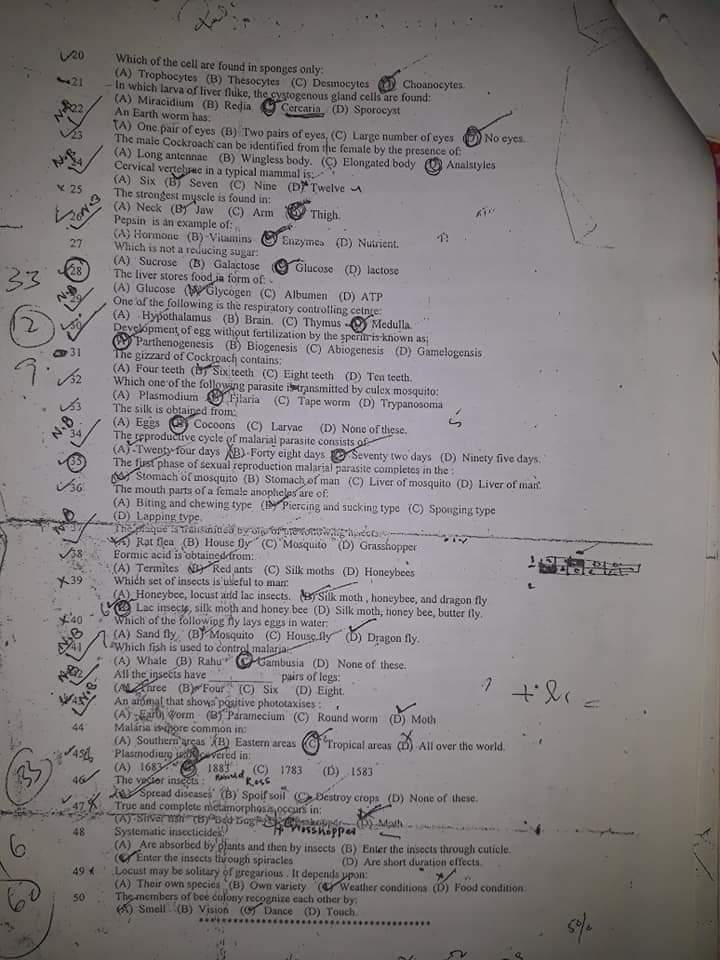 20 Which of the cell are found in sponges only:
(A) Trophocytes (B) Thesocytes (C) Desmocytes (D) Choanocytes.
21 In which larva of liver fluke, the cystogenous gland cells are found:
(A) Miracidium (B) Redia (C) Cercaria (D) Sporocyst
N.B 22 An Earth worm has:
(A) One pair of eyes (B) Two pairs of eyes, (C) Large number of eyes (D) No eyes.
23 The male Cockroach can be identified from the female by the presence of:
(A) Long antennae (B) Wingless body. (C) Elongated body (D) Analstyles
N.B 24 Cervical vertebrae in a typical mammal is:
(A) Six (B) Seven (C) Nine (D) Twelve
25 The strongest muscle is found in:
(A) Neck (B) Jaw (C) Arm (D) Thigh.
26 Pepsin is an example of:
(A) Hormone (B) Vitamins (C) Enzymes (D) Nutrient.
27 Which is not a reducing sugar:
(A) Sucrose (B) Galactose (C) Glucose (D) lactose
33
28 The liver stores food in form of:
(A) Glucose (B) Glycogen (C) Albumen (D) ATP
N.B 29 One of the following is the respiratory controlling cetnre:
(A) Hypothalamus (B) Brain. (C) Thymus (D) Medulla.
30 Development of egg without fertilization by the sperm is known as;
(A) Parthenogenesis (B) Biogenesis (C) Abiogenesis (D) Gamelogensis
31 The gizzard of Cockroach contains:
(A) Four teeth (B) Six teeth (C) Eight teeth (D) Ten teeth.
32 Which one of the following parasite is transmitted by culex mosquito:
(A) Plasmodium (B) Filaria (C) Tape worm (D) Trypanosoma
33 The silk is obtained from:
(A) Eggs (B) Cocoons (C) Larvae (D) None of these.
N.B 34 The reproductive cycle of malarial parasite consists of
(A) Twenty four days (B) Forty eight days (C) Seventy two days (D) Ninety five days.
35 The first phase of sexual reproduction malarial parasite completes in the :
(A) Stomach of mosquito (B) Stomach of man (C) Liver of mosquito (D) Liver of man.
36 The mouth parts of a female anopheles are of:
(A) Biting and chewing type (B) Piercing and sucking type (C) Sponging type
(D) Lapping type.
N.B 37 The plaque is transmitted by one of the following insects
(A) Rat flea (B) House fly (C) Mosquito (D) Grasshopper
38 Formic acid is obtained from:
(A) Termites (B) Red ants (C) Silk moths (D) Honeybees
39 Which set of insects is useful to man:
(A) Honeybee, locust and lac insects. (B) Silk moth , honeybee, and dragon fly
(C) Lac insects, silk moth and honey bee (D) Silk moth, honey bee, butter fly.
40 Which of the following fly lays eggs in water:
(A) Sand fly (B) Mosquito (C) House fly (D) Dragon fly.
N.B 41 Which fish is used to control malaria:
(A) Whale (B) Rahu (C) Gambusia (D) None of these.
N.B 42 All the insects have pairs of legs:
(A) Three (B) Four (C) Six (D) Eight.
N.B An animal that shows positive phototaxises :
(A) Earth worm (B) Paramecium (C) Round worm (D) Moth
44 Malaria is more common in:
(A) Southern areas (B) Eastern areas (C) Tropical areas (D) All over the world.
45 Plasmodium is discovered in:
(A) 1683 (B) 1883 (C) 1783 (D) 1583
33
46 The vector insects : Ross
(A) Spread diseases (B) Spoil soil (C) Destroy crops (D) None of these.
47 True and complete metamorphosis occurs in:
(A) Silver fish (B) Bed bug (D) Math
Grosshopper
48 Systematic insecticides:
(A) Are absorbed by plants and then by insects (B) Enter the insects through cuticle.
(C) Enter the insects through spiracles (D) Are short duration effects.
49 Locust may be solitary of gregarious . It depends upon:
(A) Their own species (B) Own variety (C) Weather conditions (D) Food condition
50 The members of bee colony recognize each other by:
(A) Smell (B) Vision (C) Dance (D) Touch.